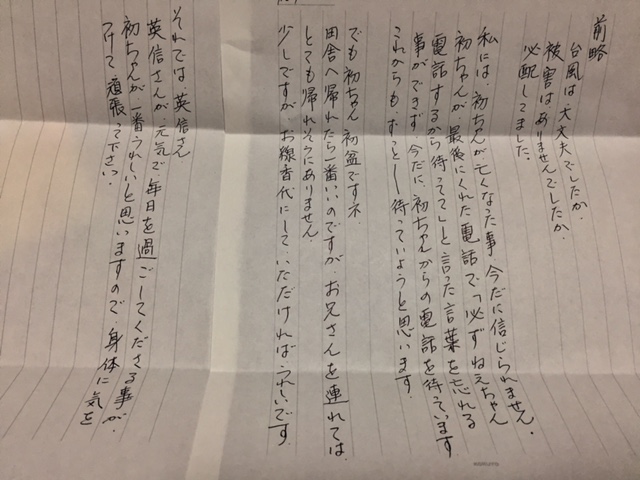 前略
台風は大丈夫でしたか.
被害はありませんでしたか.
心配してました.
私には、初ちゃんが亡くなった事 今だに信じられません.
初ちゃんが、最後にくれた電話で、「必ずねえちゃん
電話するから待ってて」と言った言葉を忘れる
事ができず、今だに、初ちゃんからの電話を待っています
これからも、ずっとー待っていようと思います.
でも初ちゃん 初盆ですネ
田舎へ帰れたら一番いいのですが、お兄さんを連れては.
とても帰れそうにありません.
少しですが、お線香代にして、いただければ、うれしいです.
それでは、英信さん
英信さんが、元気で、毎日を過ごしてくださる事が.
初ちゃんが一番うれしいと思いますので、身体に気を
つけて頑張って下さい.